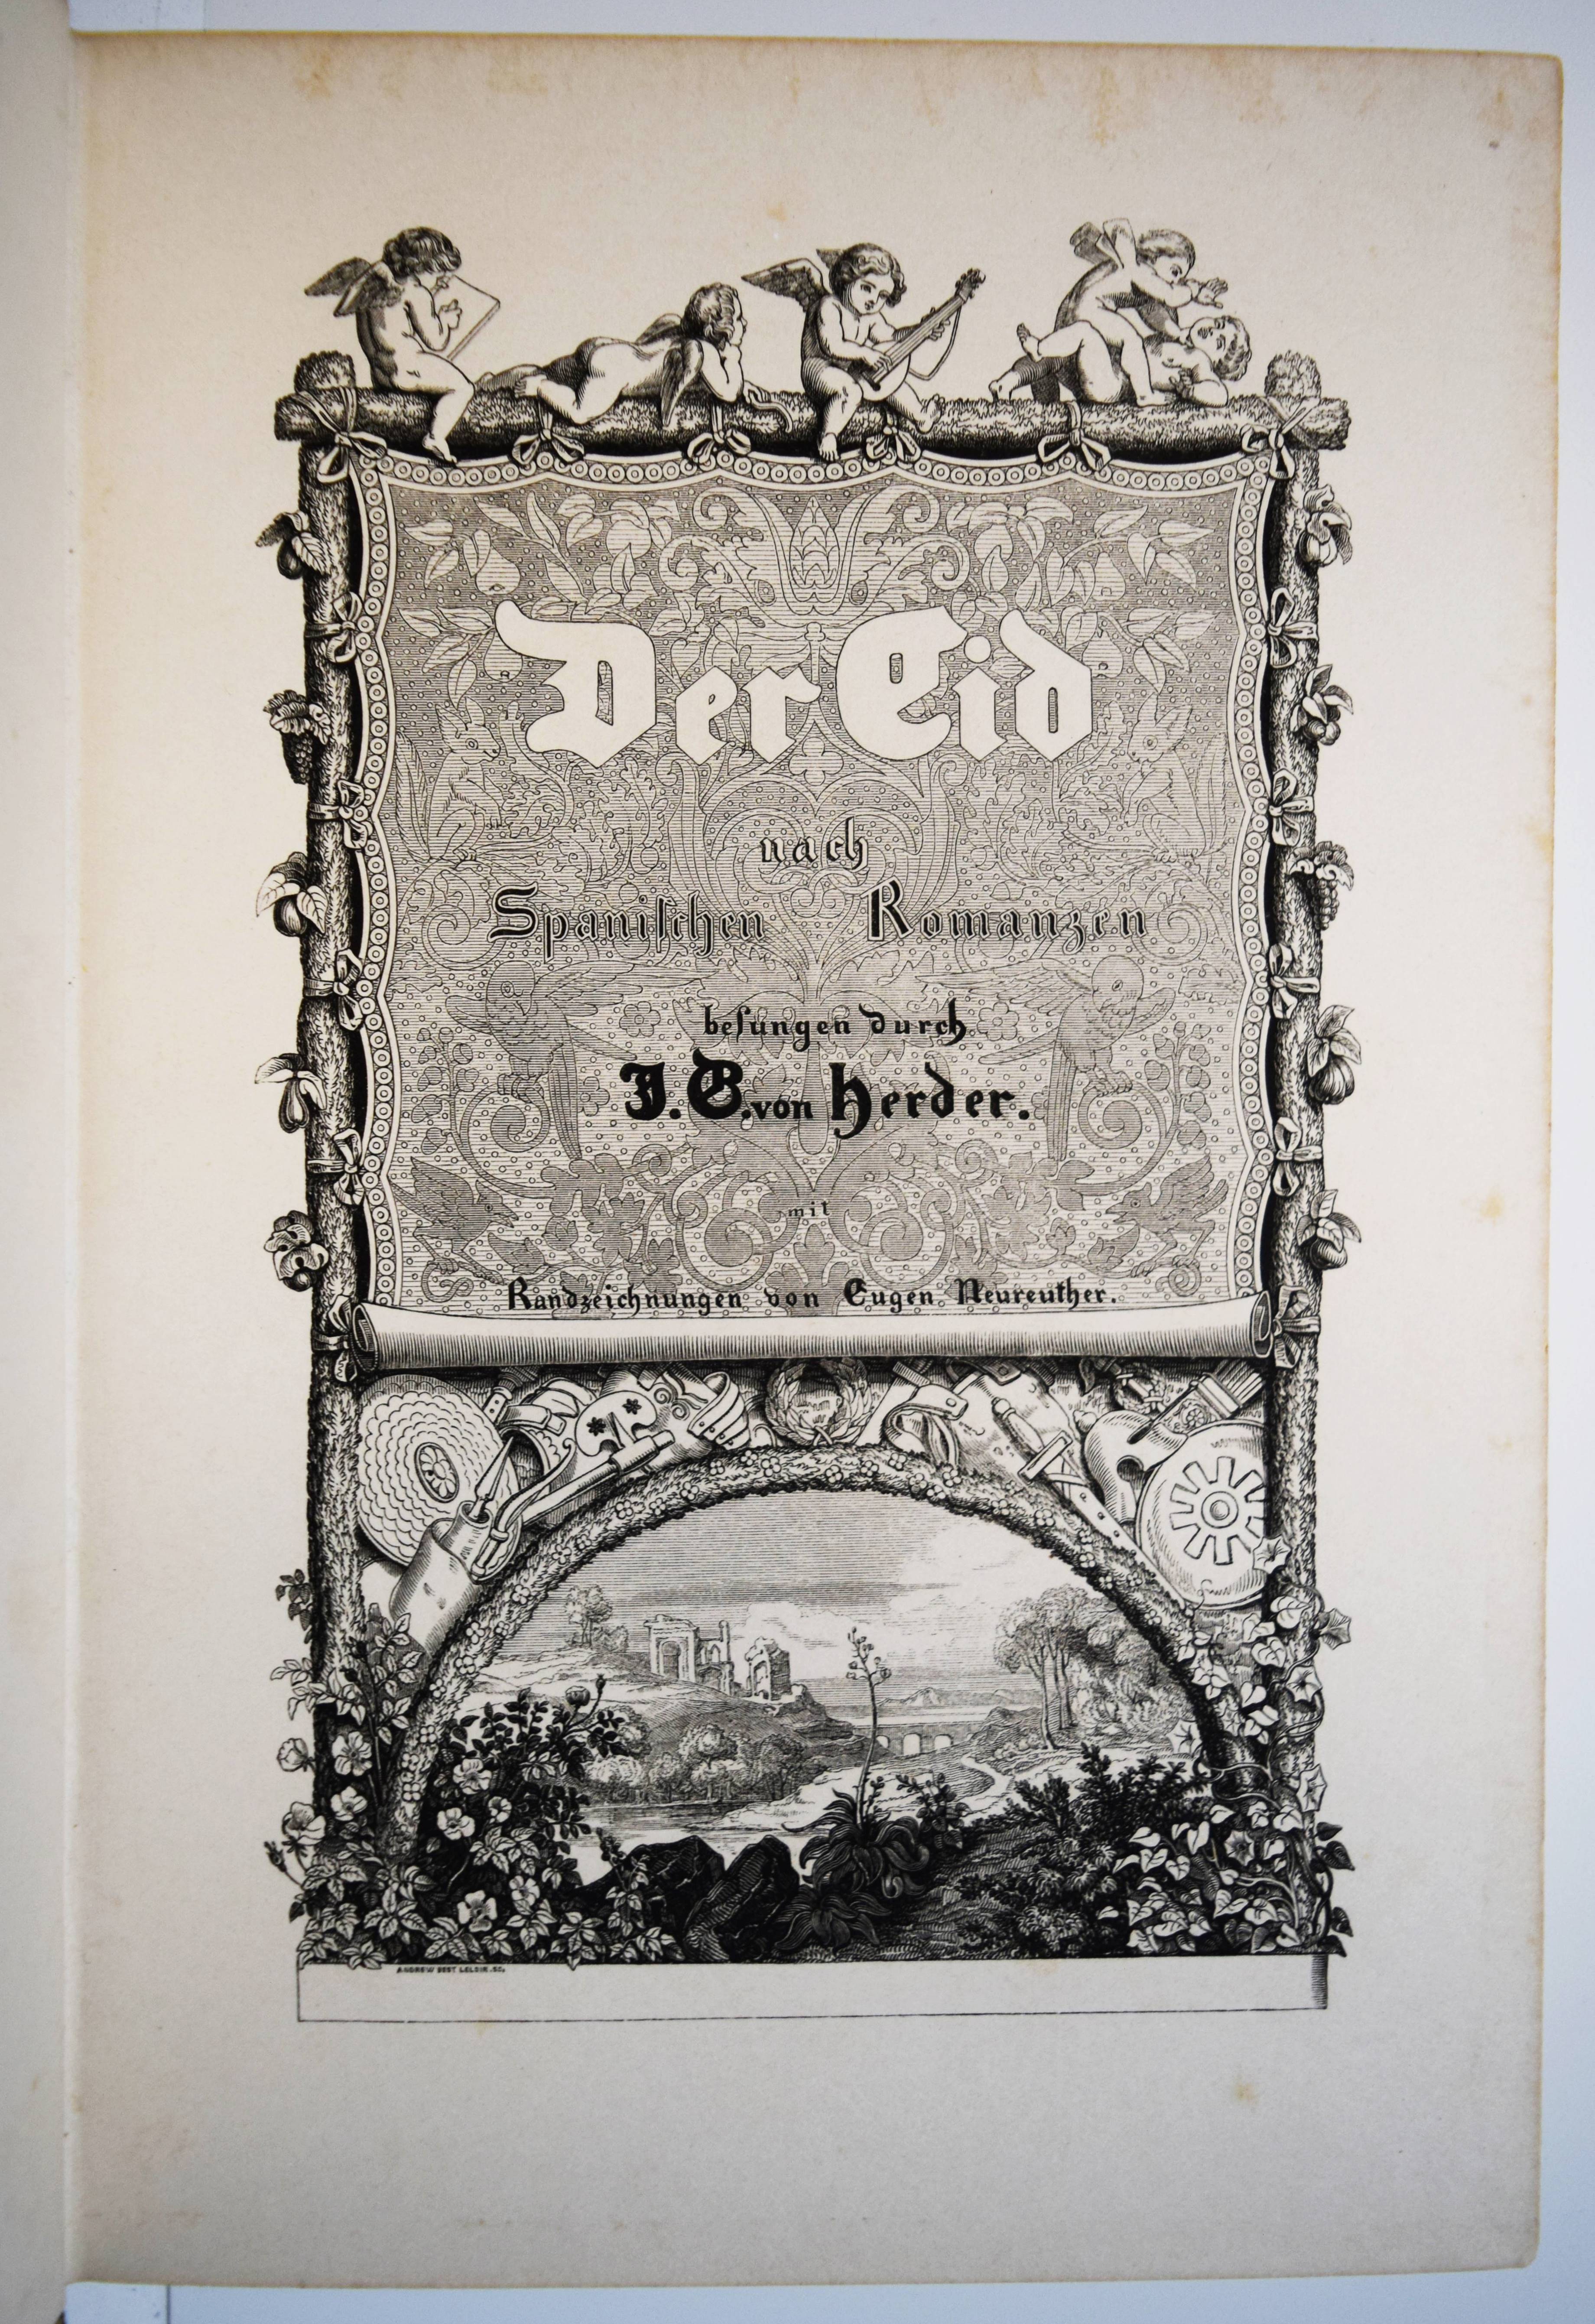 Der Cid
nach
Spaniſchen Romanzen
beſungen durch
J. G. von Herder.
mit
Randzeichnungen von Eugen Neureuther.
ANDREW BEST LELOIR. SC.